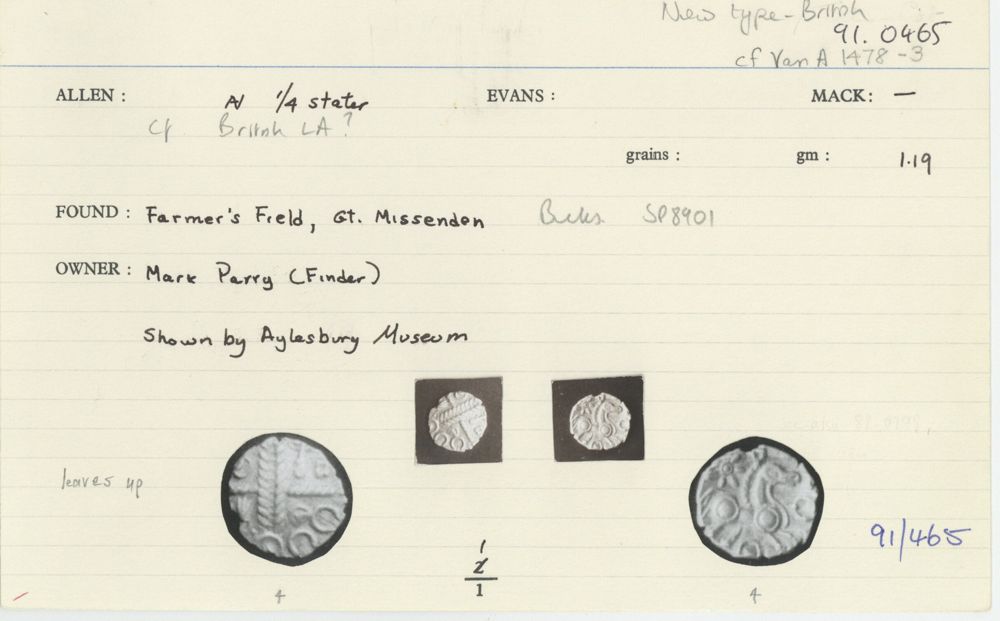 New type - British
91. 0465
cf Van A 1478 -3
ALLEN : N 1/4 stater EVANS : MACK: —
cf British LA ?
grains : gm : 1.19
FOUND : Farmer's Field, Gt. Missenden Bucks. SP8901
OWNER : Mark Parry (Finder)
Shown by Aylesbury Museum
leaves up
1
2
1
91/465
4 4